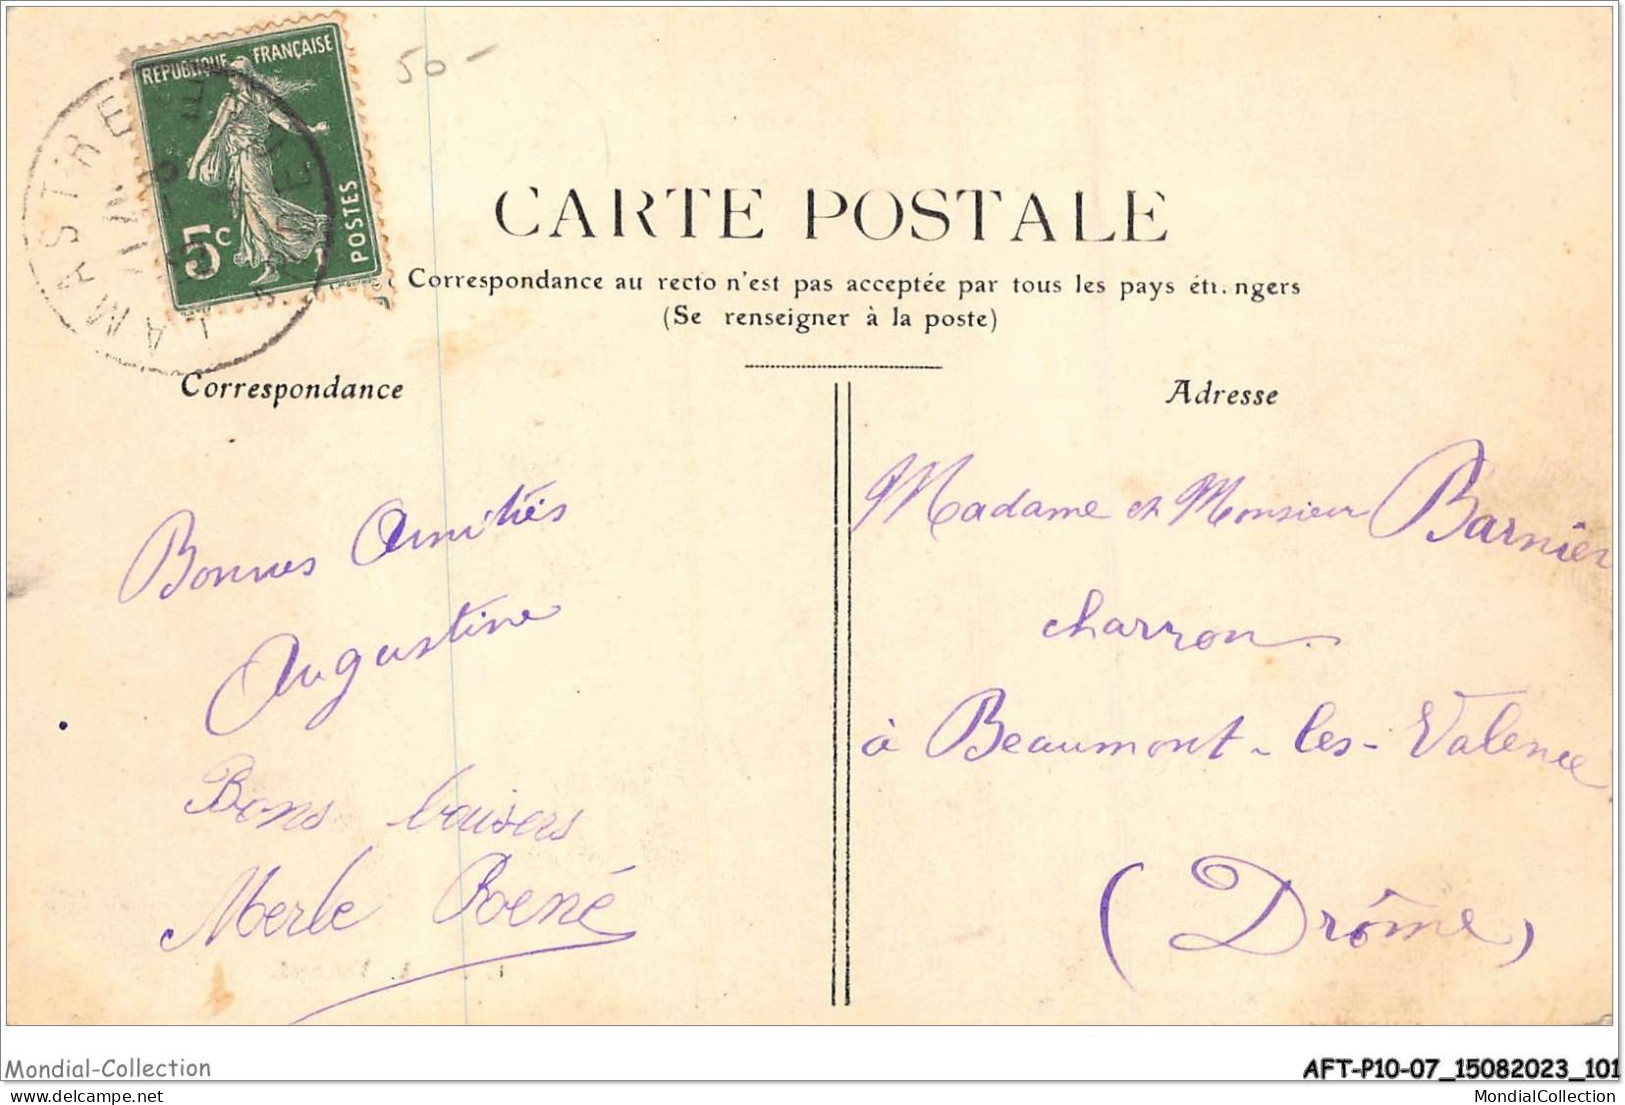 50-
REPUBLIQUE FRANÇAISE
5c
POSTES
LAMASTRE
CARTE POSTALE
Correspondance au recto n'est pas acceptée par tous les pays ngers
(Se renseigner à la poste)
Correspondance
Adresse
Bonnes Amitiés
Augustine
Bons baisers
Merle René
Madame et Monsieur Barnier
charron
à Beaumont-les-Valence
(Drôme)
Mondial-Collection
AFT-P10-07_15082023_101
www.delcampe.net
MondialCollection